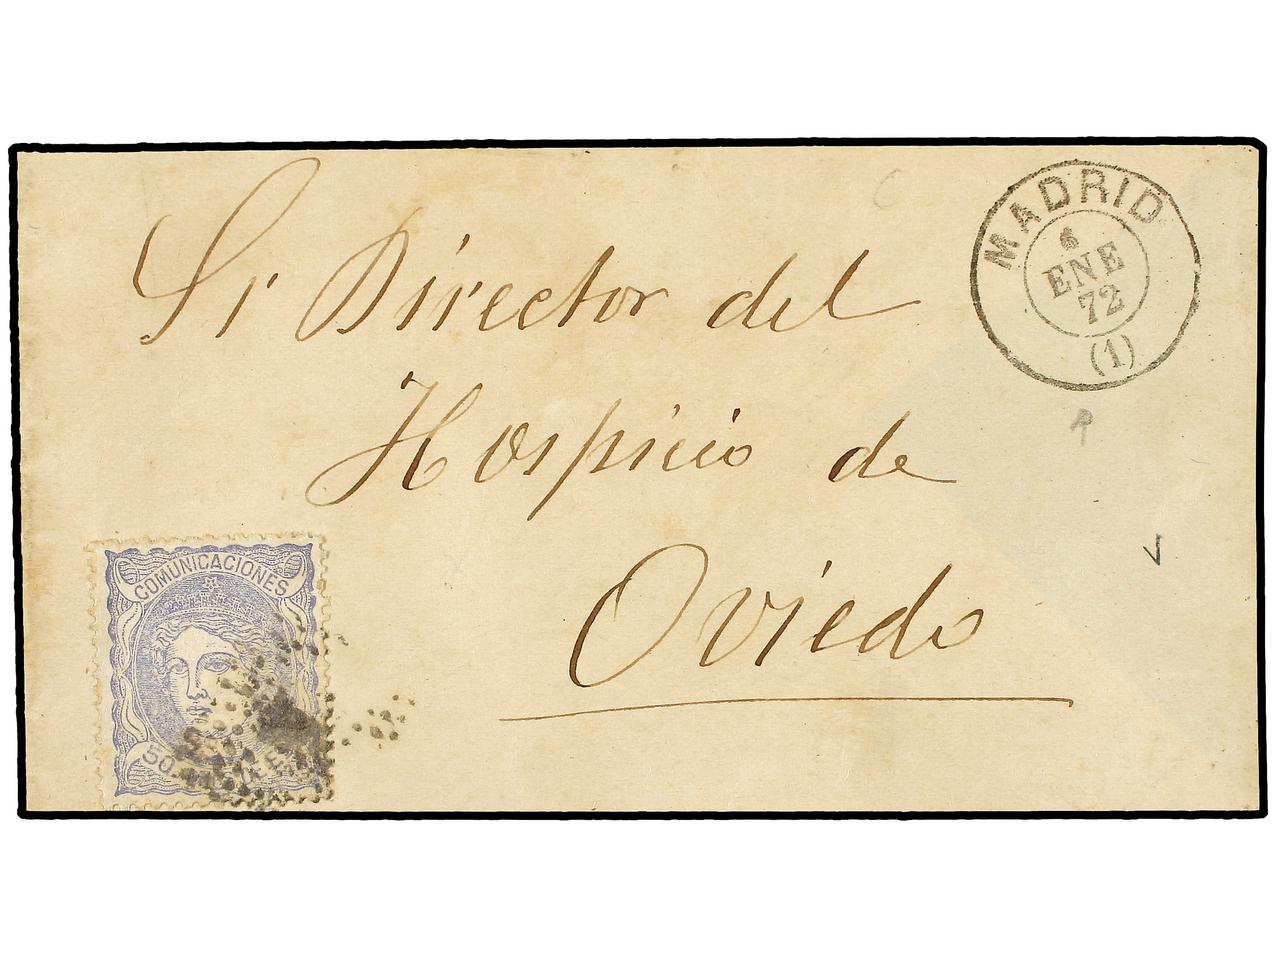 MADRID
6
ENE
72
(1)
Sr Director del
Hospicio de
Oviedo
COMUNICACIONES
50